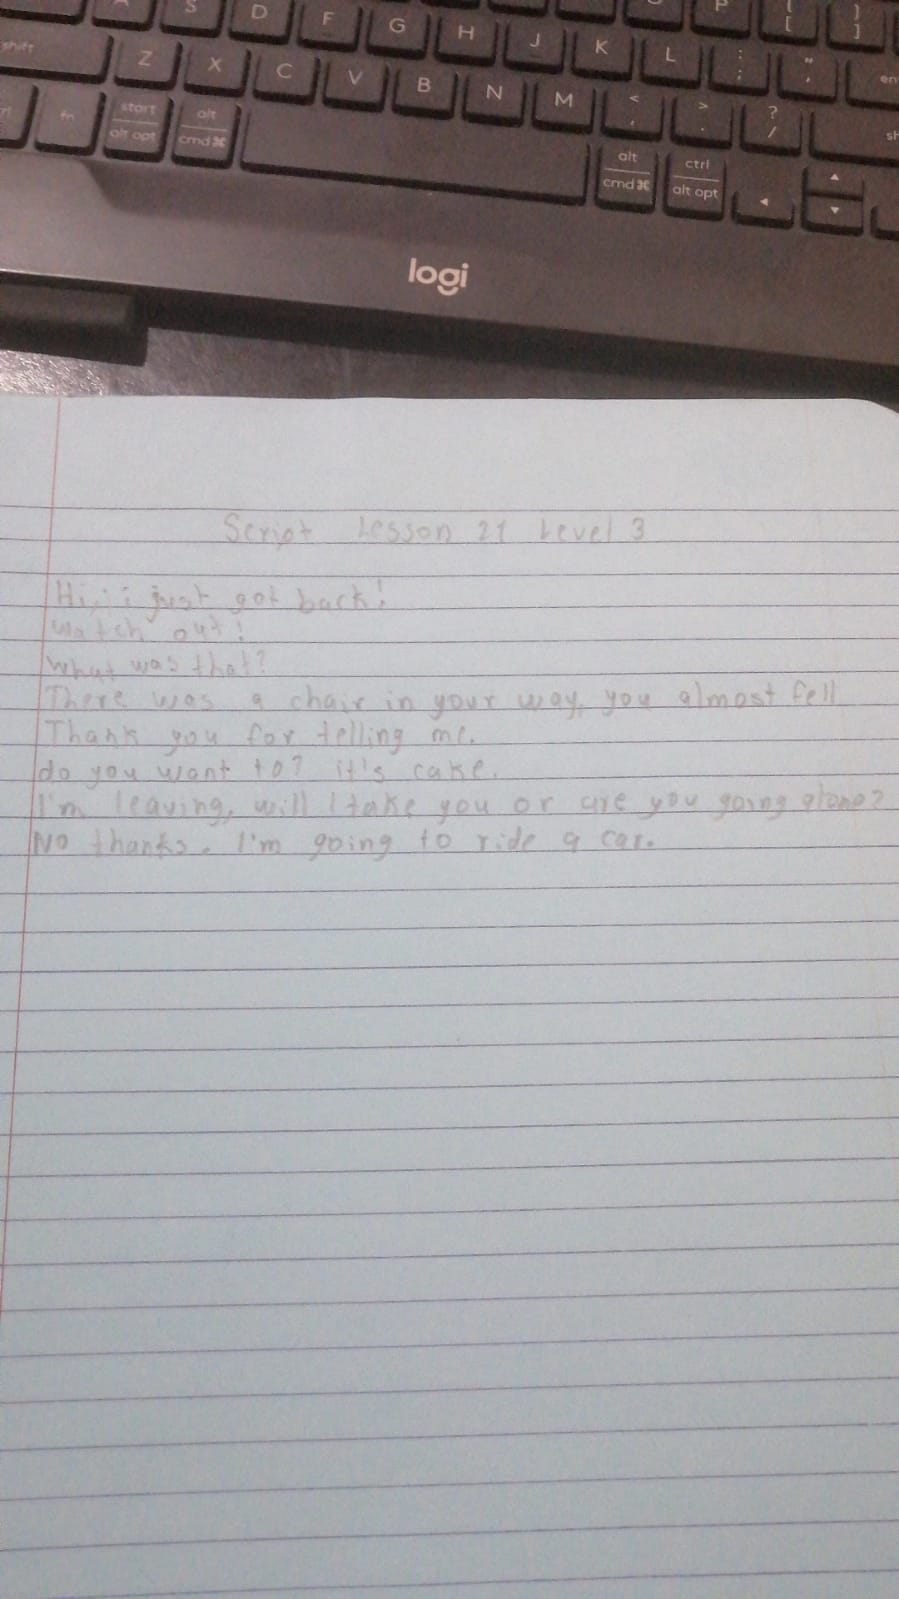 S D F G H J K L P { [ } ]
shift Z X C V B N M < , > . ? / : ; " '
fn start alt opt alt cmd ⌘ alt cmd ⌘ ctrl alt opt
logi
Script Lesson 21 Level 3
Hi, i just got back!
Watch out!
What was that?
There was a chair in your way, you almost fell
Thank you for telling me.
do you want to? it's cake.
I'm leaving, will I take you or are you going alone?
No thanks. I'm going to ride a car.